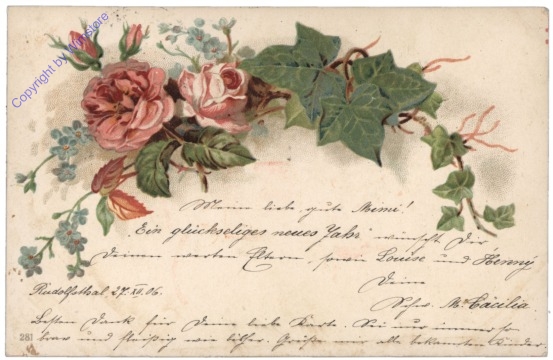 Copyright by ansichtskartenstore
Meine liebe gute Mimi!
Ein glückseliges neues Jahr wünscht Dir
Deinen werten Eltern, sowie Louise und Henny
Deine
Rudolfsthal 27.XII.06.
Schw. M. Cäcilia
Besten Dank für Deine liebe Karte. Sei nur immer so
281 brav und fleißig wie bisher. Grüße mir alle bekannten Kinder.